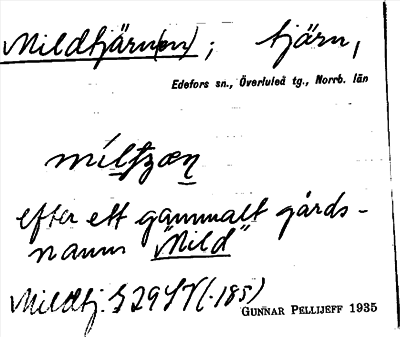 Mildtjärn(en); tjärn,
Edefors sn., Överluleå tg., Norrb. län
efter ett gammalt gårds-
namn "Mild"
Mildtj. S 29 SV (-185)
GUNNAR PELLIJEFF 1935